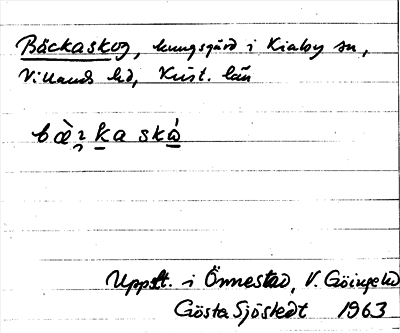 Bäckaskog, kungsgård i Kiaby sn,
Villands hd, Krist. län
bæ̀ʔkaskå̀
Uppst. i Önnestad, V. Göinge hd
Gösta Sjöstedt 1963